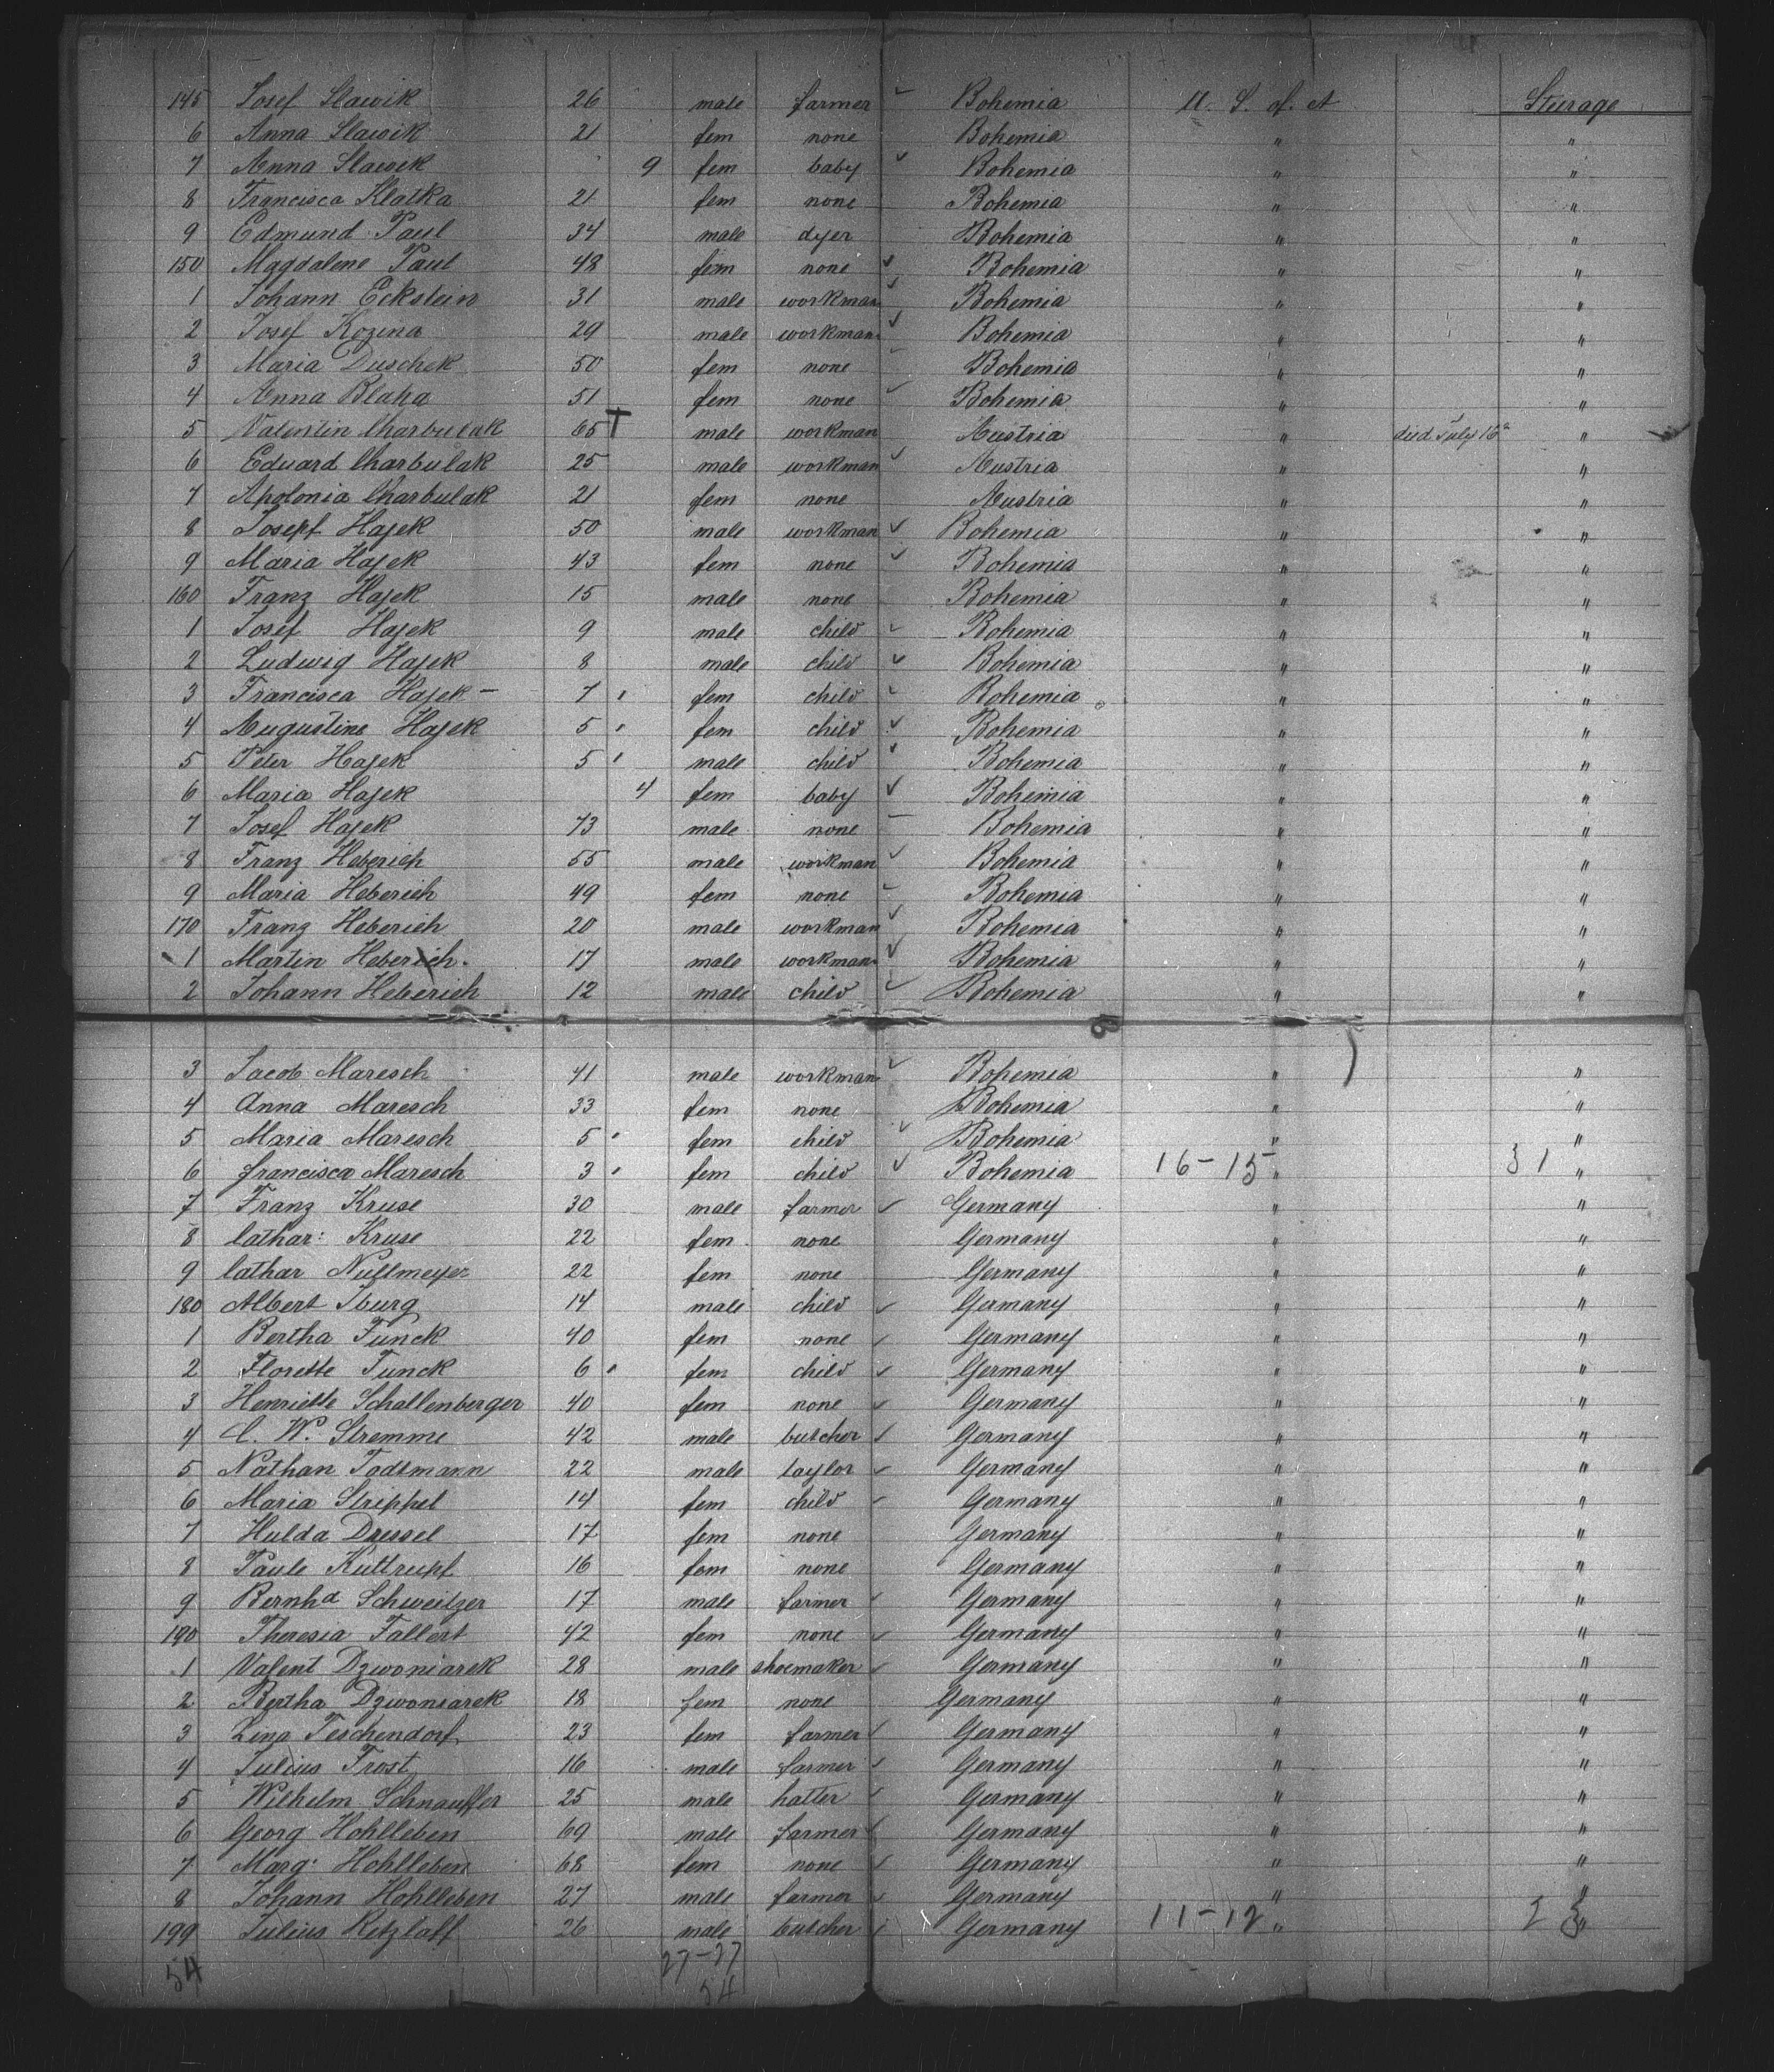 145 Josef Slawik 26 male farmer Bohemia U. S. of. A Steerage
6 Anna Slawik 21 fem none Bohemia " "
7 Anna Slawik 9 fem baby Bohemia " "
8 Francisca Klatka 21 fem none Bohemia " "
9 Edmund Paul 34 male dyer Bohemia " "
150 Magdalene Paul 48 fem none Bohemia " "
1 Johann Eckstein 31 male workman Bohemia " "
2 Josef Kozena 29 male workman Bohemia " "
3 Maria Duschek 50 fem none Bohemia " "
4 Anna Blaha 51 fem none Bohemia " "
5 Valentin Charbulak 65 male workman Austria " died July 16 "
6 Eduard Charbulak 25 male workman Austria " "
7 Apolonia Charbulak 21 fem none Austria " "
8 Josepf Hajek 50 male workman Bohemia " "
9 Maria Hajek 43 fem none Bohemia " "
160 Franz Hajek 15 male none Bohemia " "
1 Josef Hajek 9 male child Bohemia " "
2 Ludwig Hajek 8 male child Bohemia " "
3 Francisca Hajek - 7 fem child Bohemia " "
4 Augustine Hajek 5 fem child Bohemia " "
5 Peter Hajek 5 male child Bohemia " "
6 Maria Hajek 4 fem baby Bohemia " "
7 Josef Hajek 73 male none Bohemia " "
8 Franz Heberich 55 male workman Bohemia " "
9 Maria Heberich 49 fem none Bohemia " "
170 Franz Heberich 20 male workman Bohemia " "
1 Martin Heberich 17 male workman Bohemia " "
2 Johann Heberich 12 male child Bohemia " "
3 Jacob Maresch 41 male workman Bohemia " "
4 Anna Maresch 33 fem none Bohemia " "
5 Maria Maresch 5 fem child Bohemia " "
6 francisca Maresch 3 fem child Bohemia 16-15 " 31 "
7 Franz Kruse 30 male farmer Germany " "
8 Cathar: Kruse 22 fem none Germany " "
9 Cathar Nullmeyer 22 fem none Germany " "
180 Albert Iburg 14 male child Germany " "
1 Bertha Funck 40 fem none Germany " "
2 Florette Funck 6 fem child Germany " "
3 Henriette Schallenberger 40 fem none Germany " "
4 C. W. Stremme 42 male butcher Germany " "
5 Nathan Todtmann 22 male taylor Germany " "
6 Maria Strippel 14 fem child Germany " "
7 Hulda Dressel 17 fem none Germany " "
8 Paule Kuttrupf 16 fem none Germany " "
9 Bernhd Schweitzer 17 male farmer Germany " "
190 Theresia Fallert 42 fem none Germany " "
1 Valent Dzwoniarek 28 male shoemaker Germany " "
2 Bertha Dzwoniarek 18 fem none Germany " "
3 Lina Teschendorf 23 fem farmer Germany " "
4 Julius Frost 16 male farmer Germany " "
5 Wilhelm Schnauffer 25 male hatter Germany " "
6 Georg Hohlleben 69 male farmer Germany " "
7 Marg: Hohlleben 68 fem none Germany " "
8 Johann Hohlleben 27 male farmer Germany " "
199 Julius Retzlaff 26 male butcher Germany 11-12 " 23 "
54 27-27
54